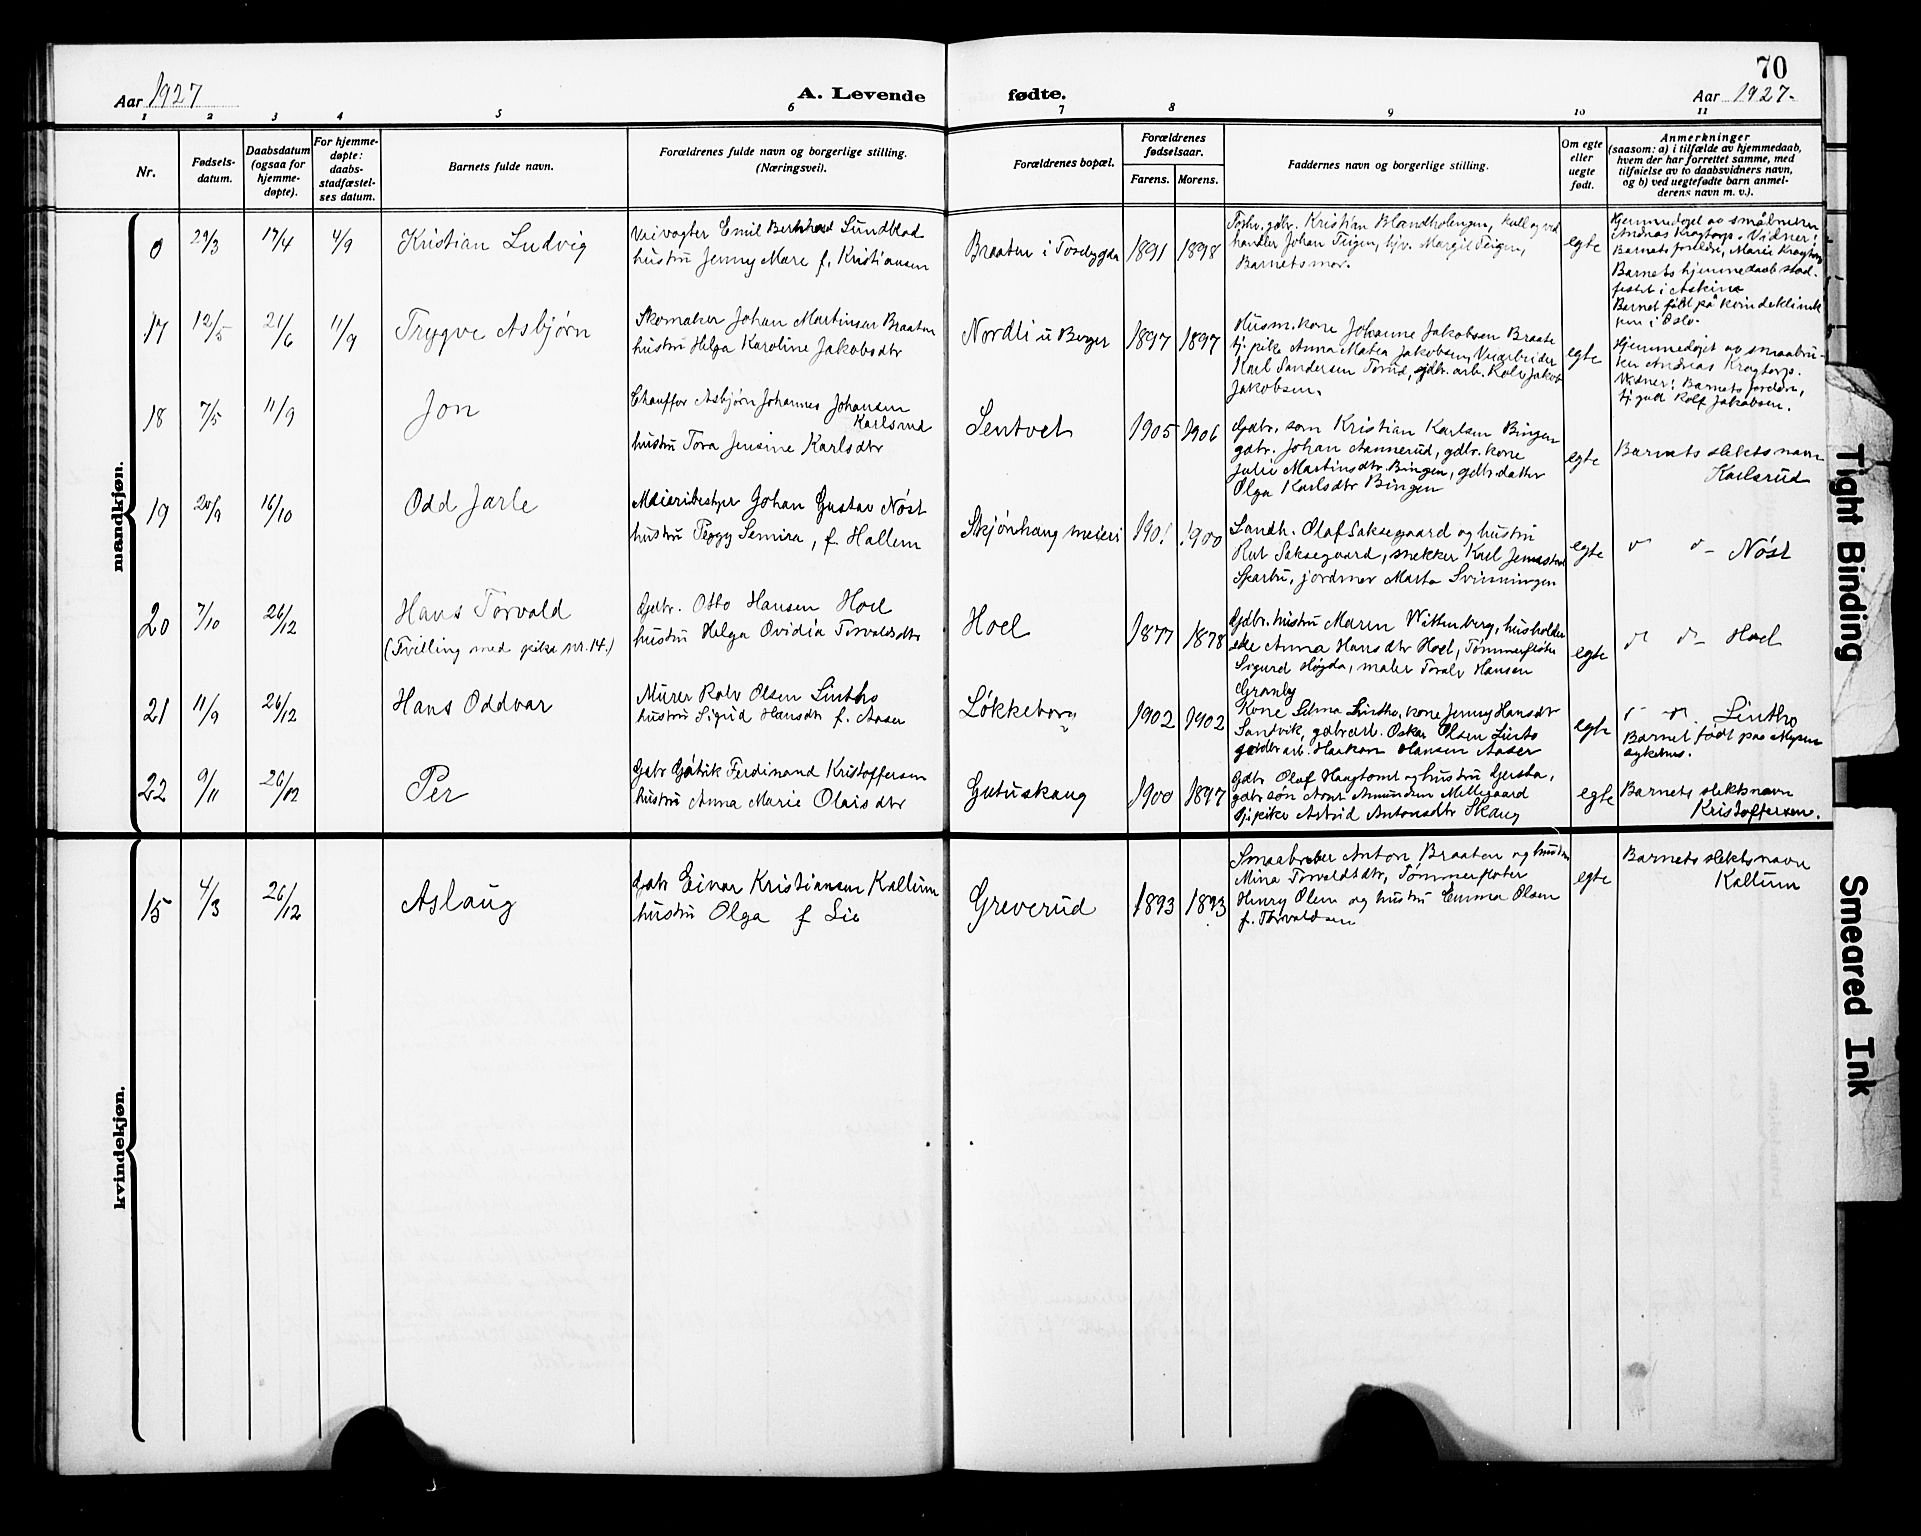 70
Aar 1927
A. Levende
fødte.
Aar 1927.
1 2 3 4 5 6 7 8 9 10 11
Nr.
Fødsels-
datum.
Daabsdatum
(ogsaa for
hjemme-
døpte).
For hjemme-
døpte:
daabs-
stadfæstel-
ses datum.
Barnets fulde navn.
Forældrenes fulde navn og borgerlige stilling.
(Næringsvei).
Forældrenes bopæl.
Forældrenes
fødselsaar.
Farens. Morens.
Faddernes navn og borgerlige stilling.
Om egte
eller
uegte
født.
Anmerkninger
(saasom: a) i tilfælde av hjemmedaab,
hvem der har forrettet samme, med
tilføielse av to daabsvidners navn,
og b) ved uegtefødte barn anmel-
derens navn m. v.).
mandkjøn.
0 29/3 17/4 4/9 Kristian Ludvig
Veivogter Emil Bernhard Sundblad
hustru Jenny Mare f. Kristiansen
Braaten i 1891 1898
gdbr. Kristian
handler Johan Teigen, Margit Teigen,
Barnets mor.
egte
Hjemmedøpt av
Andreas Krogtorp. Vidner:
Barnets foreldre, Marie Krogtorp
Barnets hjemmedaab stad-
festet i Askim
Barnet født på kvindeklinik
ken i Oslo.
17 12/5 21/6 11/9 Trygve Asbjørn
Skomaker Johan Martinsen Braaten
hustru Helga Karoline Jakobsdtr
Nordli u Berger 1897 1897
Husm. kone Johanne Jakobsen Braate
tj. pike Anna Matea Jakobsen,
Karl Sandersen gdbr. arb. Rolv Jakob
Jakobsen.
egte
Hjemmedøpt av smaabru-
ker Andreas Krogtorp.
Vidner: Barnets
tj. gut Rolf Jakobsen.
18 7/5 11/9 Jon
Chauffør Asbjørn Johannes Johansen
Karlsrud
hustru Tora Jensine Karlsdtr
Sentvet 1905 1906
Gdbr. søn Kristian Karlsen Bingen
gdbr. Johan Aannerud, gdbr. kone
Julie Martinsdtr. Bingen, gdbr. datter
Olga Karlsdtr Bingen
egte
Barnets slektsnavn
Karlsrud
19 20/9 16/10 Odd Jarle
Meieribestyr Johan Gustav Nøst
hustru Peggy Semira, f. Hallem
Skjønhaug meieri 1901 1900
Landh. Olaf Saksegaard og hustru
Rut Saksegaard, snekker Karl
Sparbu, jordmor Marta Svinningen
egte
Nøst
20 7/10 26/12 Hans Torvald
(Tvilling med pike nr. 14.)
Gdbr. Otto Hansen Hoel
hustru Helga Ovidia Torvaldsdtr
Hoel 1877 1878
Gdbr. hustru Maren Wittenberg, husholder
ske Anna Hansdtr Hoel, Tømmerfløter
Sigurd Høgda, maler Toralv Hansen
Granby
egte
Hoel
21 11/9 26/12 Hans Oddvar
Murer Rolv Olsen Sintho
hustru Sigrid Hansdtr f. Aaser
Løkkeborg 1902 1902
Kone Selma Sintho, kone Jenny Hansdtr
Sandvik, gdbrarb. Oskar Olsen Sinto
arb. Haakon Hansen Aaser
egte
Sintho
Barnet født paa Mysen
sykehus.
22 9/11 26/12 Per
Gabr Gotrik Ferdinand Kristoffersen
hustru Anna Marie Olaisdtr
Gutuskaug 1900 1897
Gdbr Olaf Haugtomt og hustru Gjerta,
gdbr søn Arnt Amundsen Millegaard
tj. pike Astrid Antonsdtr Skaug
egte
Barnets slektsnavn
Kristoffersen.
kvindekjøn.
15 4/3 26/12 Aslaug
Gabr Einar Kristiansen Kallum
hustru Olga f Lie
Greverud 1893 1893
Smaabruker Anton Braaten og hustru
Mina Torvaldsdtr, Tømmerfløter
Henry Olsen og hustru Emma Olsen
f. Torvaldsen
egte
Barnets slektsnavn
Kallum
Tight Binding
Smeared Ink